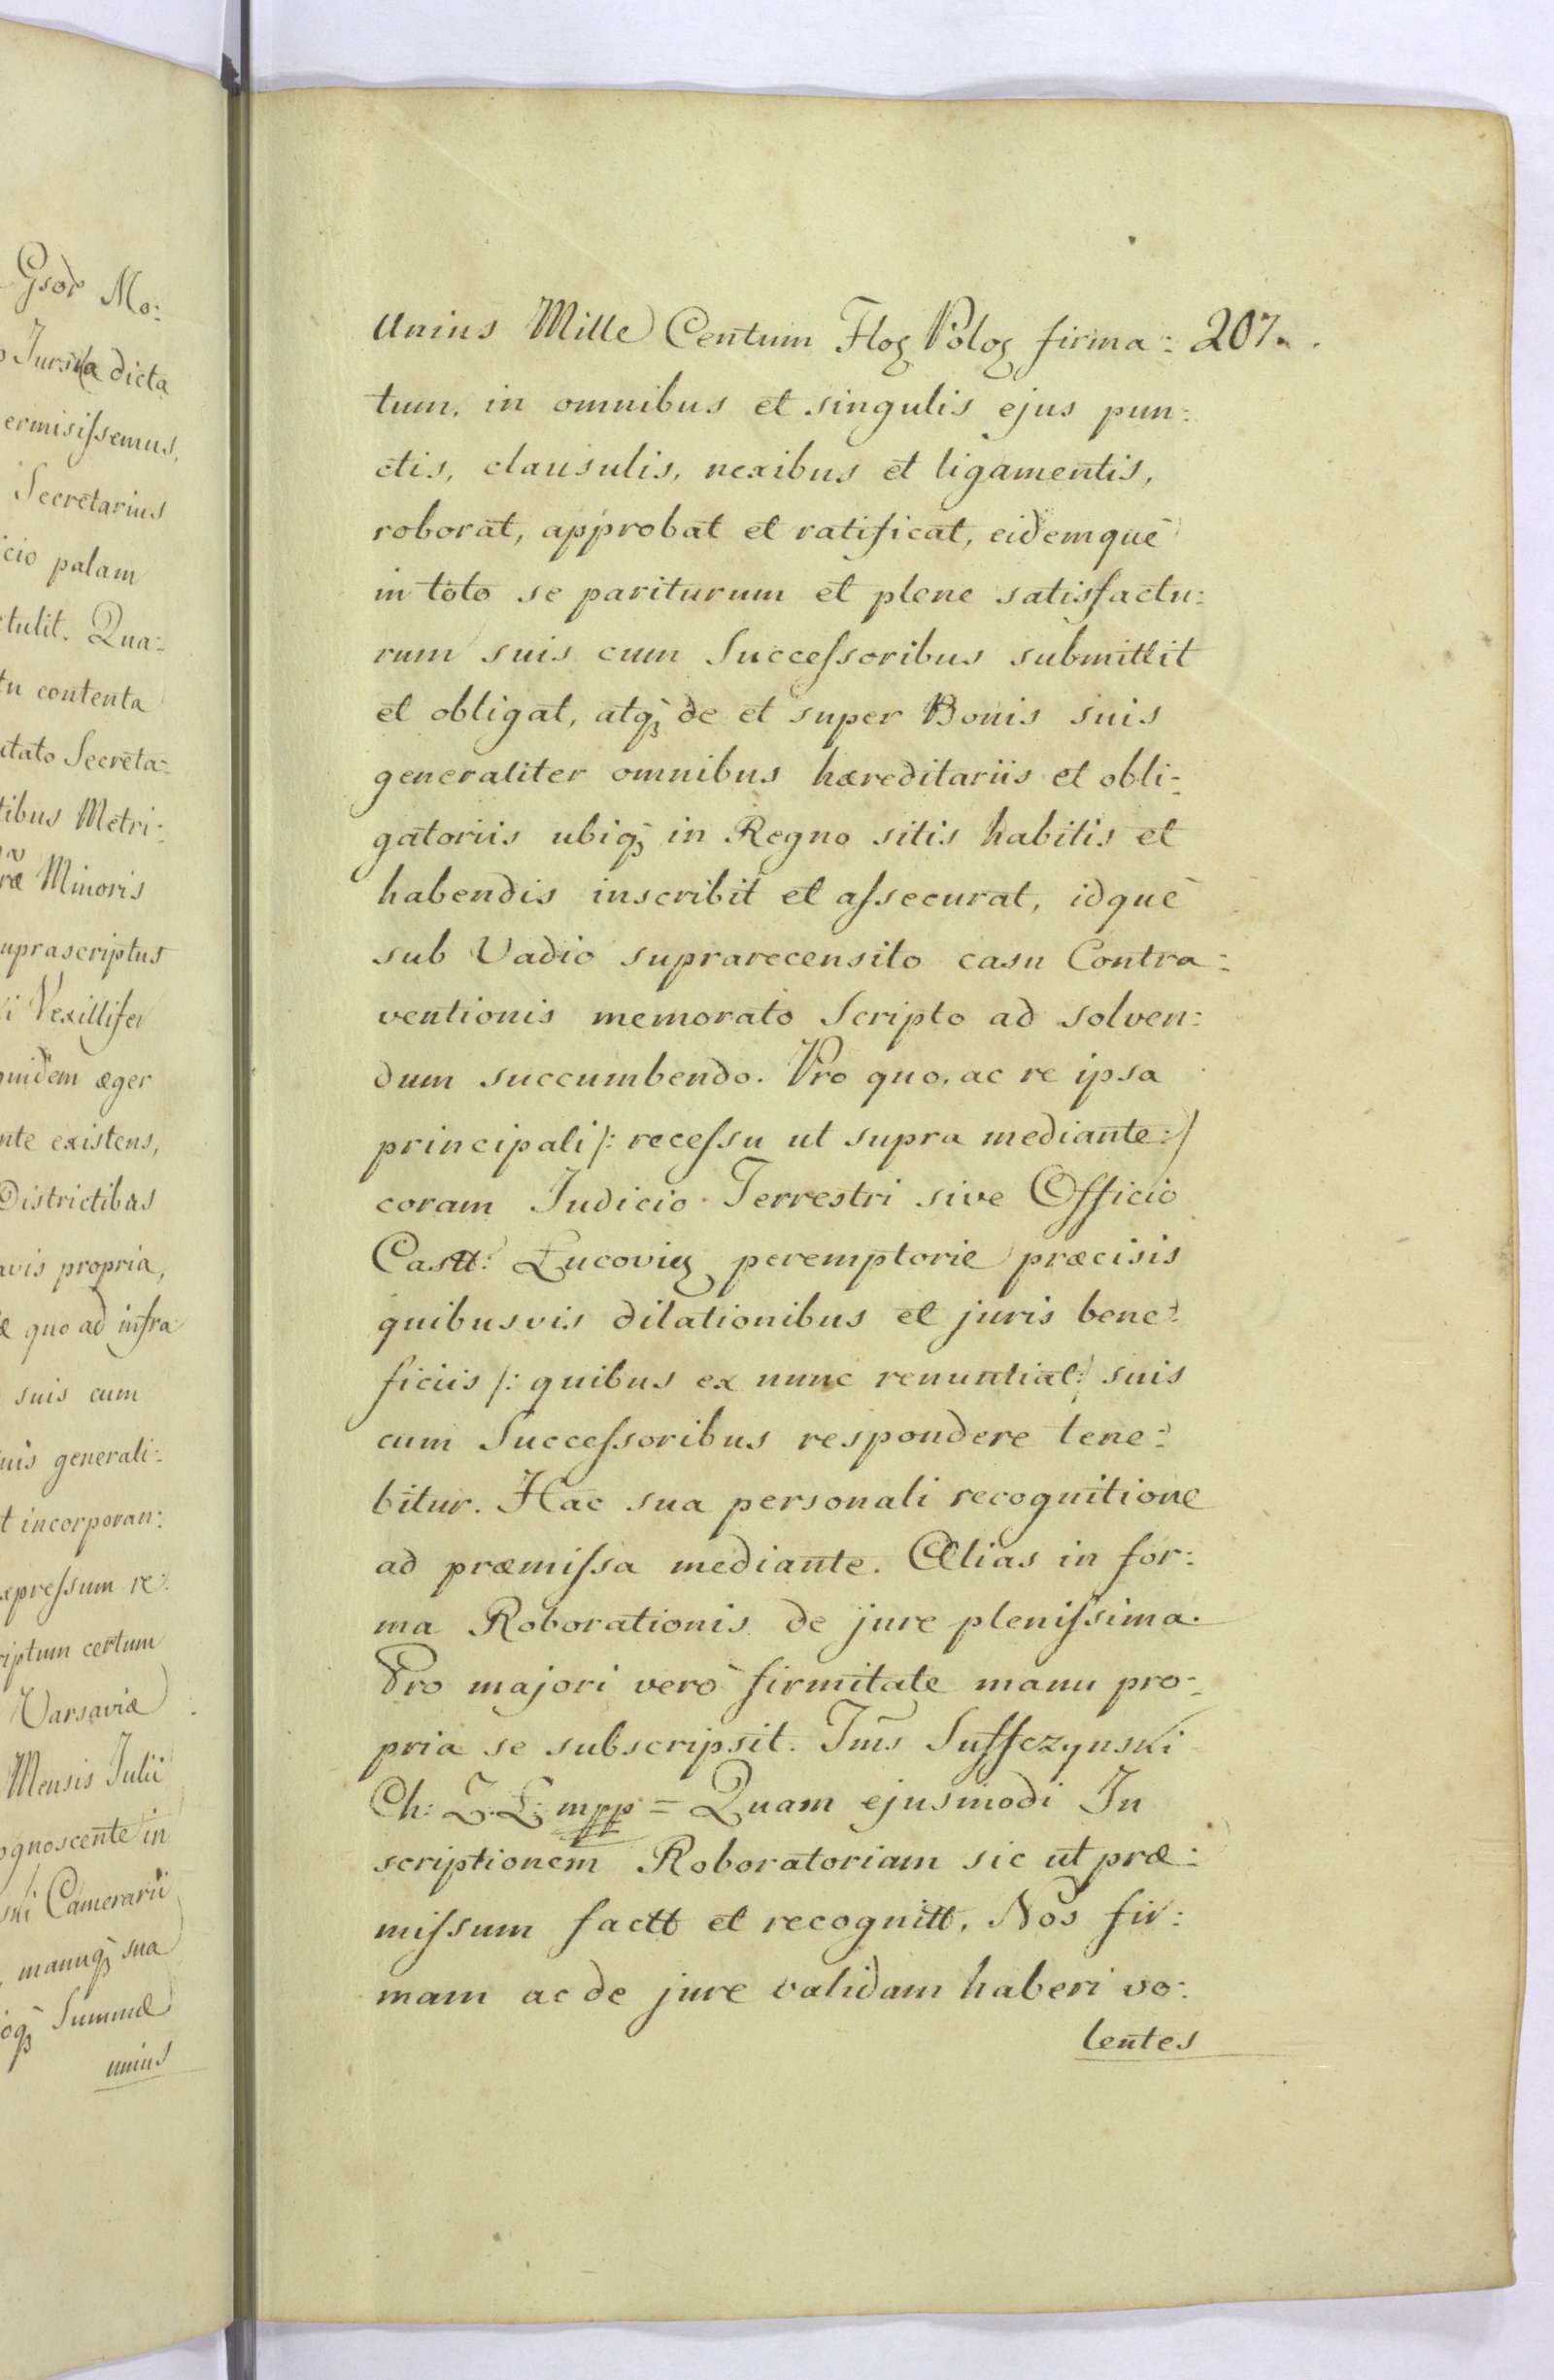 Gsodr Mo:
Jursna dicta
ermisissemus,
Secretarius
icio palam
tulit. Qua:
tu contenta
itato Secreta:
tibus Metri:
ræ Minoris
uprascriptus
i Vexillifer
quidem æger
nte existens,
Districtibus
avis propria,
æ quo ad infra
suis cum
uis generali:
t incorporan:
xpressum re:
riptum certum
Varsaviæ
Mensis Julii
ognoscente in
ski Camerarii
manuq; sua
oq; Summæ
unius
Unius Mille Centum Floꝝ Poloꝝ firma: 207.
tum, in omnibus et singulis ejus pun:
ctis, clausulis, nexibus et ligamentis,
roborat, approbat et ratificat, eidemquè
in toto se pariturum et plene satisfactu:
rum suis cum Successoribus submittit
et obligat, atq; de et super Bonis suis
generaliter omnibus hæreditariis et obli:
gatoriis ubiq; in Regno sitis habitis et
habendis inscribit et assecurat, idquè
sub Vadio suprarecensito casu Contra:
ventionis memorato Scripto ad solven:
dum succumbendo. Pro quo, ac re ipsa
principali /: recessu ut supra mediante :/
coram Judicio Terrestri sive Officio
Castt: Łucovieꝝ peremptorie præcisis
quibusvis dilationibus et juris bene:
ficiis /: quibus ex nunc renuntiat :/ suis
cum Successoribus respondere tene:
bitur. Hac sua personali recognitione
ad præmissa mediante. Alias in for:
ma Roborationis de jure plenissima.
Pro majori verò firmitate manu pro:
pria se subscripsit. Ims Suffczynski
Ch: Z. Ł: mpp = Quam ejusmodi In
scriptionem Roboratoriam sic ut præ:
missum factt et recognitt, Nos fir:
mam ac de jure validam haberi vo:
lentes